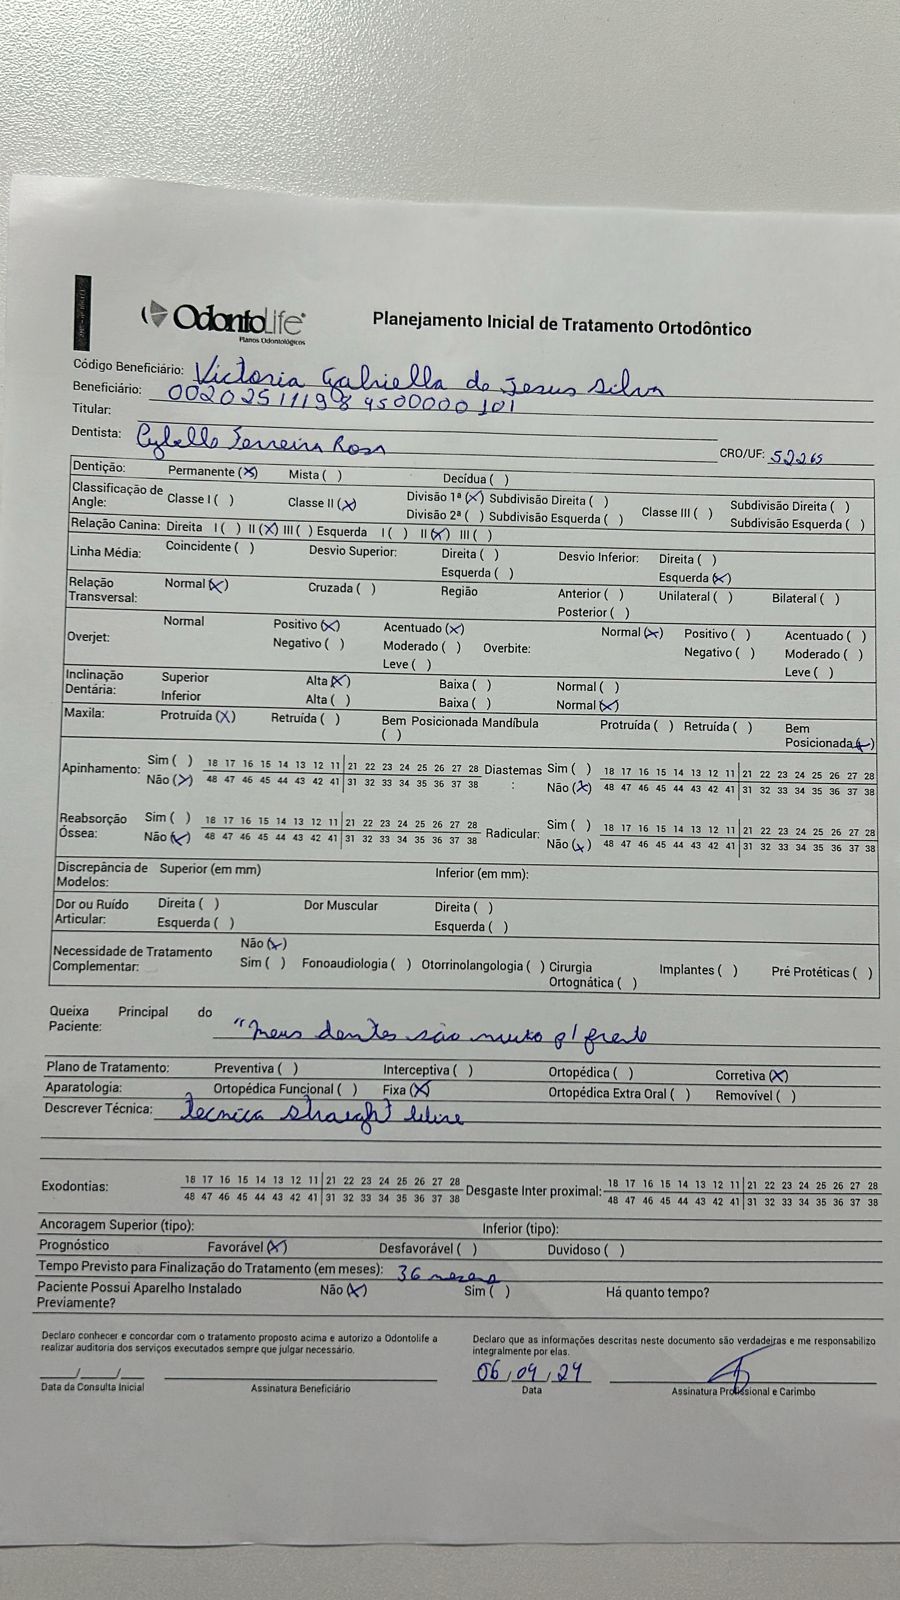 OdontoLife
Planos Odontológicos
Planejamento Inicial de Tratamento Ortodôntico
Código Beneficiário: Victoria Gabriella de Jesus Silva
Beneficiário: 00202511198 4500000101
Titular:
Dentista: Cybelle Ferreira Rosa CRO/UF: 52265
Dentição: Permanente (x) Mista ( ) Decídua ( )
Classificação de Angle: Classe I ( ) Classe II (x) Divisão 1ª (x) Subdivisão Direita ( ) Classe III ( ) Subdivisão Direita ( )
Divisão 2ª ( ) Subdivisão Esquerda ( ) Subdivisão Esquerda ( )
Relação Canina: Direita I ( ) II (x) III ( ) Esquerda I ( ) II (x) III ( )
Linha Média: Coincidente ( ) Desvio Superior: Direita ( ) Desvio Inferior: Direita ( )
Esquerda ( ) Esquerda (x)
Relação Transversal: Normal (x) Cruzada ( ) Região Anterior ( ) Unilateral ( ) Bilateral ( )
Posterior ( )
Overjet: Normal Positivo (x) Acentuado (x) Overbite: Normal (x) Positivo ( ) Acentuado ( )
Negativo ( ) Moderado ( ) Negativo ( ) Moderado ( )
Leve ( ) Leve ( )
Inclinação Dentária: Superior Alta (x) Baixa ( ) Normal ( )
Inferior Alta ( ) Baixa ( ) Normal (x)
Maxila: Protruída (x) Retruída ( ) Bem Posicionada ( ) Mandíbula Protruída ( ) Retruída ( ) Bem Posicionada (x)
Apinhamento: Sim ( ) 18 17 16 15 14 13 12 11 21 22 23 24 25 26 27 28 Diastemas: Sim ( ) 18 17 16 15 14 13 12 11 21 22 23 24 25 26 27 28
Não (x) 48 47 46 45 44 43 42 41 31 32 33 34 35 36 37 38 Não (x) 48 47 46 45 44 43 42 41 31 32 33 34 35 36 37 38
Reabsorção Óssea: Sim ( ) 18 17 16 15 14 13 12 11 21 22 23 24 25 26 27 28 Radicular: Sim ( ) 18 17 16 15 14 13 12 11 21 22 23 24 25 26 27 28
Não (x) 48 47 46 45 44 43 42 41 31 32 33 34 35 36 37 38 Não (x) 48 47 46 45 44 43 42 41 31 32 33 34 35 36 37 38
Discrepância de Modelos: Superior (em mm) Inferior (em mm):
Dor ou Ruído Articular: Direita ( ) Dor Muscular Direita ( )
Esquerda ( ) Esquerda ( )
Necessidade de Tratamento Complementar: Não (x)
Sim ( ) Fonoaudiologia ( ) Otorrinolangologia ( ) Cirurgia Ortognática ( ) Implantes ( ) Pré Protéticas ( )
Queixa Principal do Paciente: "Meus dentes são muito p/ frente
Plano de Tratamento: Preventiva ( ) Interceptiva ( ) Ortopédica ( ) Corretiva (x)
Aparatologia: Ortopédica Funcional ( ) Fixa (x) Ortopédica Extra Oral ( ) Removível ( )
Descrever Técnica: tecnica straight
Exodontias: 18 17 16 15 14 13 12 11 21 22 23 24 25 26 27 28 Desgaste Inter proximal: 18 17 16 15 14 13 12 11 21 22 23 24 25 26 27 28
48 47 46 45 44 43 42 41 31 32 33 34 35 36 37 38 48 47 46 45 44 43 42 41 31 32 33 34 35 36 37 38
Ancoragem Superior (tipo): Inferior (tipo):
Prognóstico Favorável (x) Desfavorável ( ) Duvidoso ( )
Tempo Previsto para Finalização do Tratamento (em meses): 36 meses
Paciente Possui Aparelho Instalado Previamente? Não (x) Sim ( ) Há quanto tempo?
Declaro conhecer e concordar com o tratamento proposto acima e autorizo a Odontolife a
realizar auditoria dos serviços executados sempre que julgar necessário.
Declaro que as informações descritas neste documento são verdadeiras e me responsabilizo
integralmente por elas.
__/__/__ 06/09/24
Data da Consulta Inicial Assinatura Beneficiário Data Assinatura Profissional e Carimbo